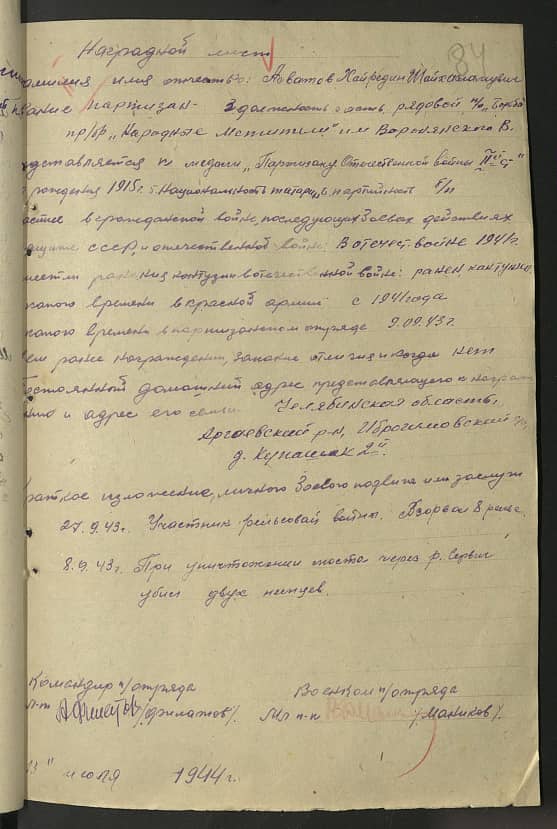 84
Наградной лист
фамилия имя отчество:
звание партизан 3 должность часть рядовой п/о „Борьба"
пр/бр „Народные Мстители" им Воронянского В.
представляется к медали „Партизану Отечественной войны IIй ст"
рождения 1915 г. 5. Национальность татарин 6 партийность б/п
участие в гражданской войне, последующих боевых действиях
защите СССР, и отечественной войне: В отечест. войне 1941 г.
имеет ли ранения контузии в отечественной войне: ранен контужен
какого времени в красной армии с 1941 года
какого времени в партизанском отряде 9.09.43 г.
чем ранее награжден, за какие отличия и когда нет
Постоянный домашний адрес представляемого к награж
дению и адрес его семьи Челябинская область,
Аргаевский р-н, Иброгимовский
д. Кунашак 2й
краткое изложение, личного боевого подвига или заслуги
27.9.43 г. Участник рельсовой войны. Взорвал 8 рельс.
8.9.43 г. При уничтожении моста через р. Сервич
убил двух немцев.
Командир п/отряда Военком п/отряда
л-т /Филатов/. Мл п-к /Маников/.
3" июля 1944 г.